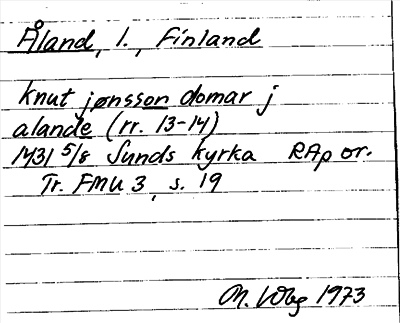 Åland, l., Finland
Knut jønsson domar j
alande (rr. 13-14)
1431 5/8 Sunds kyrka RAp or.
Tr. FMU 3, s. 19
M. Wbg 1973